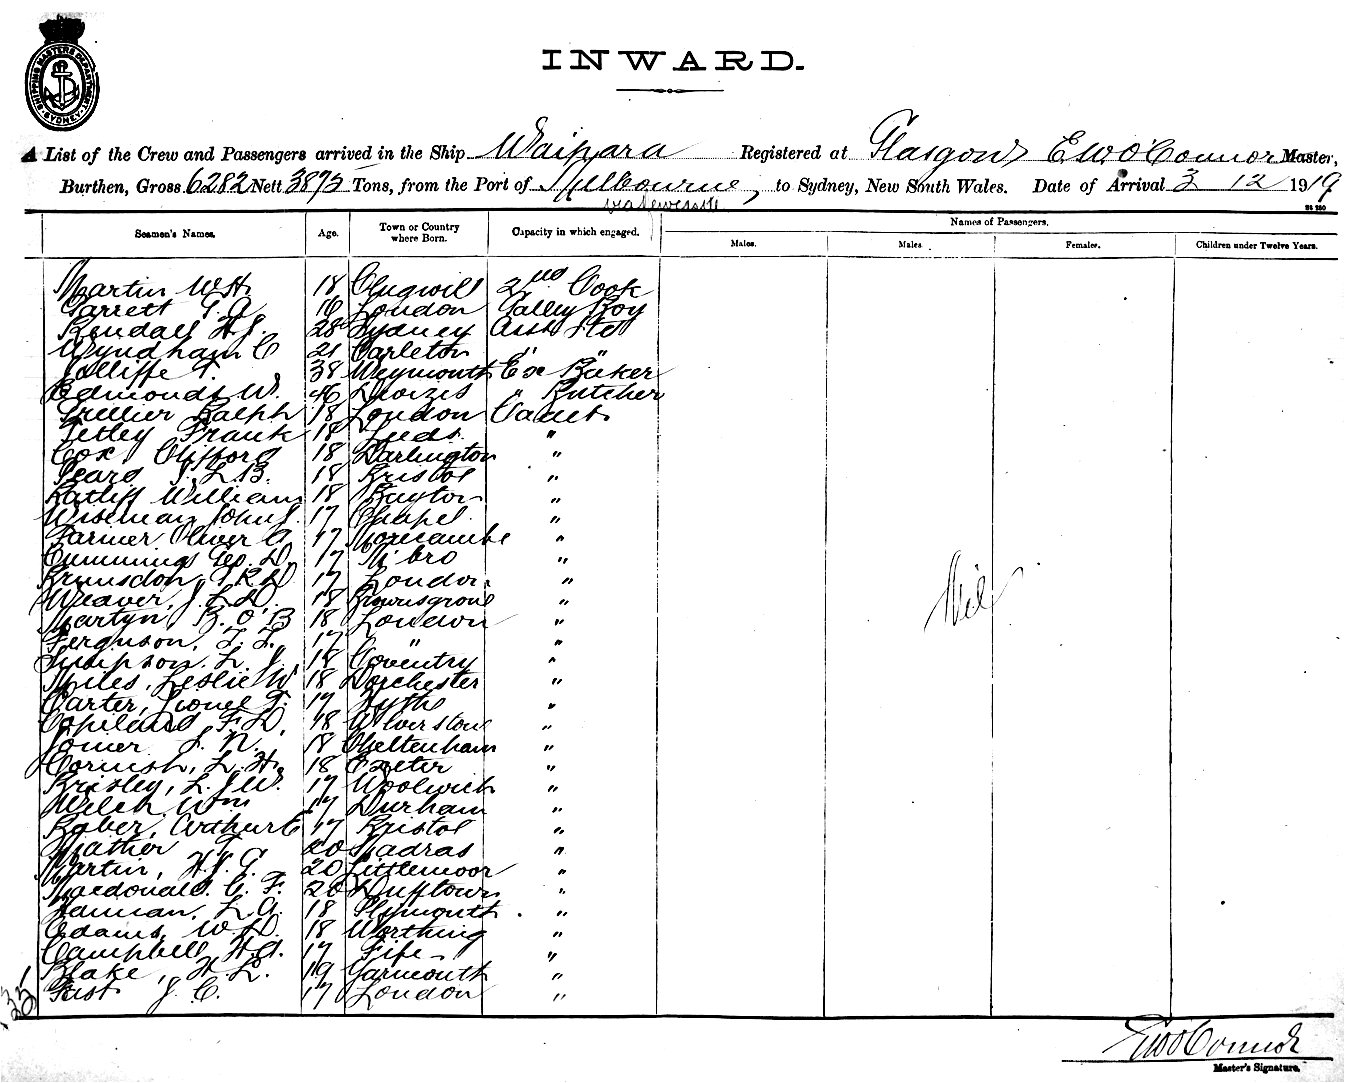 SHIPPING MASTERS DEPARTMENT SYDNEY
INWARD.
A List of the Crew and Passengers arrived in the Ship Waipara Registered at Glasgow E W O'Connor Master,
Burthen, Gross 6282 Nett 3873 Tons, from the Port of Melbourne, to Sydney, New South Wales. Date of Arrival 3 12 1919
via Newcastle
Seamen's Names. Age. Town or Country where Born. Capacity in which engaged. Names of Passengers.
Males. Males. Females. Children under Twelve Years.
Martin W H 18 2nd Cook
Garrett G A 16 London Galley Boy
Kendall H J. 28 Sydney Asst Std
Wyndham C 21 Carleton " "
Jolliffe T. 38 Weymouth Ex Baker
Edmonds W. 46 Devizes " Butcher
Grellier Ralph 18 London Cadet
Tetley Frank 18 Leeds. "
Cox, Clifford 18 Darlington "
J. L. B. 18 Bristol "
Ratliff William 18 "
Wiseman John J. 17 Chapel "
Farmer Oliver A 17 Morecambe "
Cummings Geo. D. 17 M'bro "
Brunsdon, 17 London "
Weaver, J. L. D. 18 Bromsgrove "
Martyn, B. O'B 18 London "
Ferguson, T. L. 17 " "
Simpson. L. J. 18 Coventry "
Miles, Leslie W 18 Dorchester "
Carter, Lionel F. 17 Hythe "
Copeland F. D. 18 Ulverstone "
Joiner J. N. 18 Cheltenham "
Cornish, L. H. 18 Exeter "
Brisley, L. J. W. 17 Woolwich "
Welch, Wm 17 Durham "
Baber, Arthur E 17 Bristol "
Mather T. 20 Madras "
Martin, H. J. G. 20 Littlemoor "
Macdonald. C. F. 20 Dufftown "
Hannan, L. A. 18 Plymouth "
Adams, W. D. 18 Worthing "
Campbell, H. A. 17 Fife "
Blake, H. L. 19 Yarmouth "
J. C. 17 London "
Nil
35
E W O'Connor
Master's Signature.